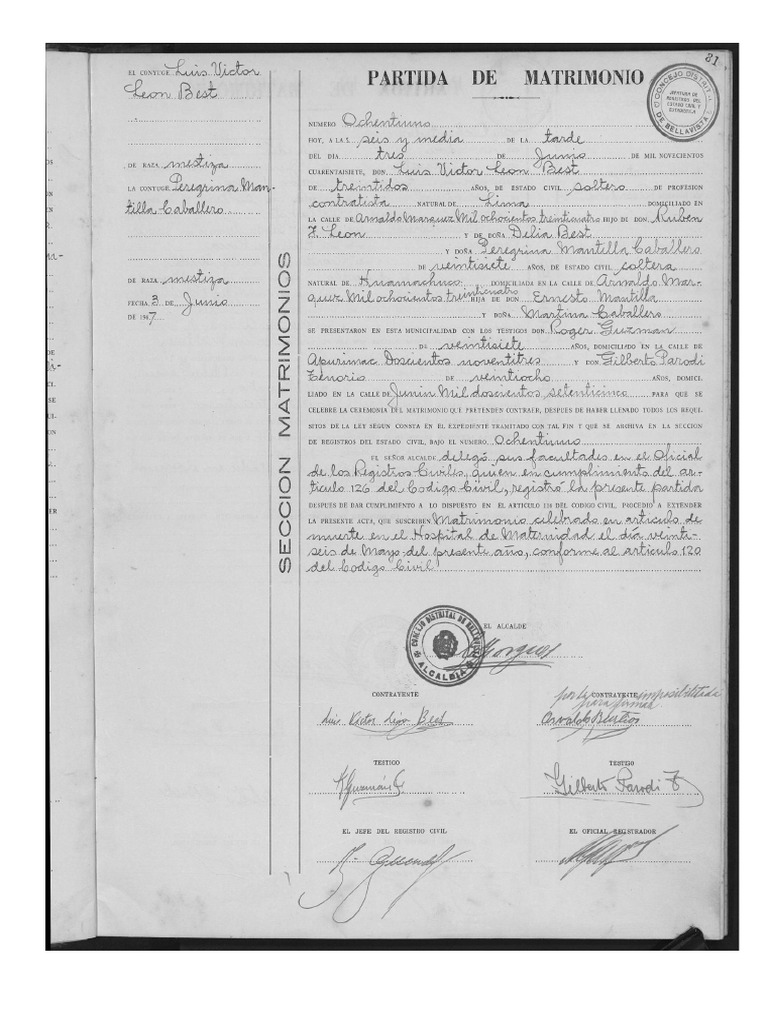 81
EL CONYUGE Luis Victor
Leon Best
DE RAZA mestiza
LA CONYUGE Peregrina Man-
tilla Caballero
DE RAZA mestiza
FECHA 3 DE Junio
DE 1947
SECCION MATRIMONIOS
PARTIDA DE MATRIMONIO
CONCEJO DISTRITAL
DE BELLAVISTA
NUMERO Ochentiuno
HOY, A LAS seis y media DE LA tarde
DEL DIA tres DE Junio DE MIL NOVECIENTOS
CUARENTAISIETE, DON Luis Victor Leon Best
DE treintidos AÑOS, DE ESTADO CIVIL soltero DE PROFESION
contratista NATURAL DE Lima DOMICILIADO EN
LA CALLE DE Arnaldo Marquez Mil ochocientos treinticuatro HIJO DE DON Ruben
F. Leon Y DE DOÑA Delia Best
Y DOÑA Peregrina Mantilla Caballero
DE veintisiete AÑOS, DE ESTADO CIVIL soltera
NATURAL DE Huamachuco DOMICILIADA EN LA CALLE DE Arnaldo Mar-
quez Mil ochocientos treinticuatro HIJA DE DON Ernesto Mantilla
Y DOÑA Martina Caballero
SE PRESENTARON EN ESTA MUNICIPALIDAD CON LOS TESTIGOS DON Roger Guzman
DE veintisiete AÑOS, DOMICILIADO EN LA CALLE DE
Apurimac Doscientos noventitres Y DON Gilberto Parodi
Tenorio DE veintiocho AÑOS, DOMICI-
LIADO EN LA CALLE DE Junin Mil doscientos setenticinco PARA QUE SE
CELEBRE LA CEREMONIA DEL MATRIMONIO QUE PRETENDEN CONTRAER, DESPUES DE HABER LLENADO TODOS LOS REQUI-
SITOS DE LA LEY SEGUN CONSTA EN EL EXPEDIENTE TRAMITADO CON TAL FIN Y QUE SE ARCHIVA EN LA SECCION
DE REGISTROS DEL ESTADO CIVIL, BAJO EL NUMERO Ochentiuno
EL SEÑOR ALCALDE delegó sus facultades en el Oficial
de los Registros Civiles, quien en cumplimiento del ar-
tículo 126 del Codigo Civil, registró la presente partida
DESPUES DE DAR CUMPLIMIENTO A LO DISPUESTO EN EL ARTICULO 114 DEL CODIGO CIVIL, PROCEDIO A EXTENDER
LA PRESENTE ACTA, QUE SUSCRIBEN Matrimonio celebrado en articulo de
muerte en el Hospital de Maternidad el día veinti-
seis de Mayo del presente año, conforme al articulo 120
del Codigo Civil
CONCEJO DISTRITAL DE BELLAVISTA
ALCALDIA
EL ALCALDE
CONTRAYENTE
por la CONTRAYENTE imposibilitada
para firmar
Luis Victor Leon Best
TESTIGO
TESTIGO
Gilberto Parodi T
EL JEFE DEL REGISTRO CIVIL
EL OFICIAL REGISTRADOR